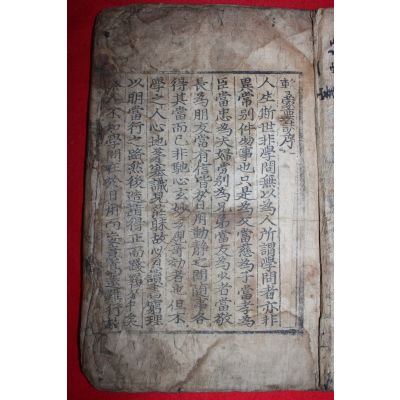 擊蒙要訣序
人生斯世非學問無以為人所謂學問者亦非
異常別件物事也只是為父當慈為子當孝為
臣當忠為夫婦當別為兄弟當友為少者當敬
長為朋友當有信皆於日用動靜之間隨事各
得其當而已非馳心玄妙希覬奇效者也但不
學之人心地茅塞識見茫昧故必讀書窮理
以明當行之路然後造詣得正而踐履得中矣
今人不知學問在於日用而妄意高遠難行故